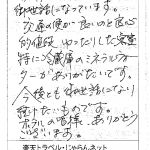 御世話になっています。
交通の便が良いのと良心
的値段、ゆったりした客室
特に冷蔵庫のミネラルウォ
ーターがありがたいです。
今後とも御世話になり
続けたいものです。
ホテルの皆様、ありがとう
ございます。
楽天トラベル・じゃらんネット